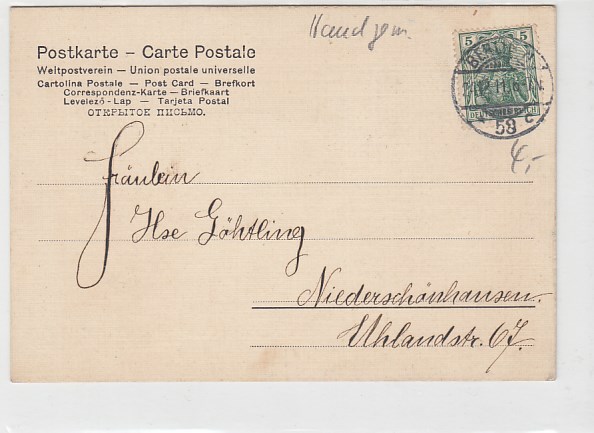 Handgem.
Postkarte – Carte Postale
Weltpostverein — Union postale universelle
Cartolina Postale — Post Card — Brefkort
Correspondenz-Karte — Briefkaart
Levelező-Lap — Tarjeta Postal
ОТКРЫТОК ПИСЬМО.
5 5
DEUTSCHES REICH
BERLIN
58 c
4,-
Fräulein
Ilse Göhtling
Niederschönhausen.
Uhlandstr. 67.